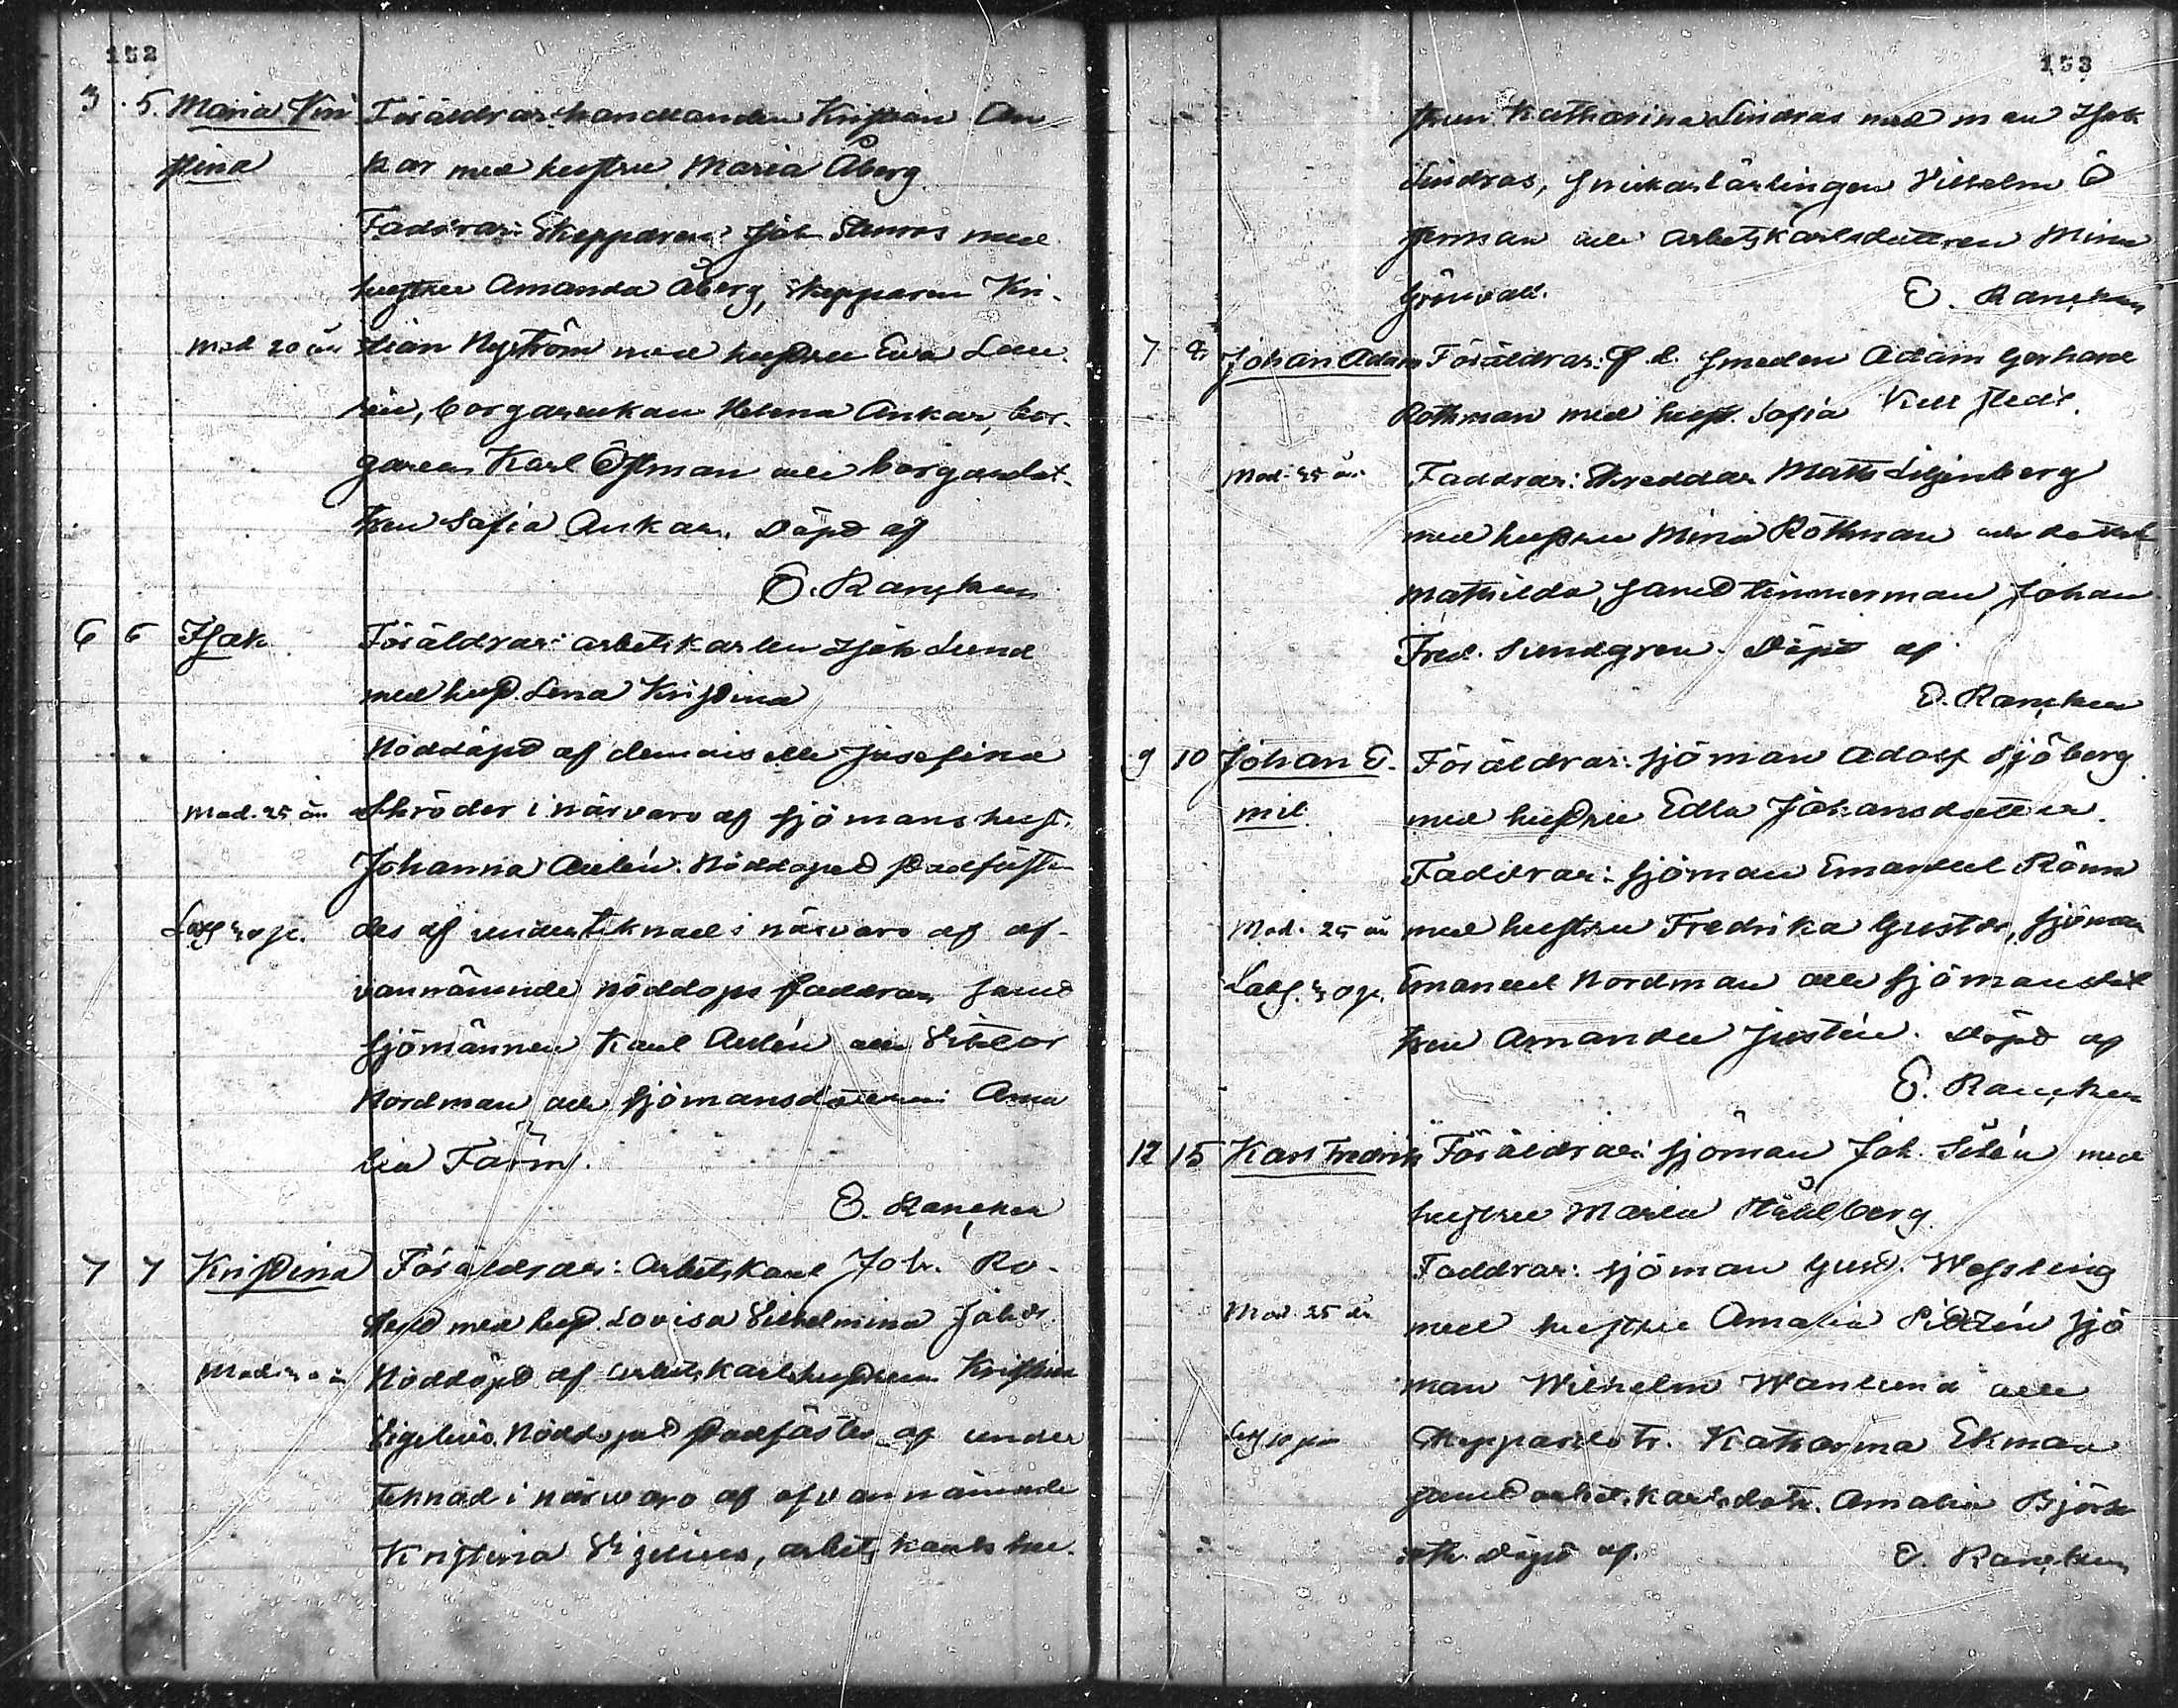 152
3 5. Maria Kri Föräldrar: handlanden Kristian An-
stina kar med hustru Maria Åberg
Faddrar: Skepparen Joh med
hustru Amanda Åberg, skepparen Kri-
Mod. 20 år stian Nyström med hustru Eva
borgarenkan Helena Ankar, bor-
garen Karl Östman och borgaredot-
tren Sofia Ankar. Döpt af
O. Rancken
6 6 Isak Föräldrar: arbetskarlen Isak Lund
med hust. Lena Kristina
Nöddöpt af demoiselle Josefina
Mod. 25 år Schröder i närvaro af sjömanshust.
Johanna Aulén. Nöddopet stadfäste-
des af undertecknad i närvaro af of-
vannämnde nöddops faddrar samt
sjömännen Karl Aulén och Viktor
Nordman och sjömansdottren Ama
lia Färm.
O. Rancken
7 7 Kristina Föräldrar: Arbetskarl Joh. Ro-
med hust. Lovisa Vilhelmina Johdr.
Nöddöpt af arbetskarlshustrun Kristina
Nöddopet stadfästes af under
tecknad i närvaro af ofvannämnde
Kristina arbetskarls hu-
153
strun Katharina Lindros med man Isak
Lindros, snickarlärlingen Vilhelm Ö
sterman och arbetskarlsdottren Mina
Grönvall. O. Rancken
7 8 Johan Adam Föräldrar: f.d. smeden Adam Gerhard
Rothman med hust. Sofia
Mod. 35 år Faddrar: Skreddar Matts Liljenberg
med hustru Mina Rothman och dotter
Mathilda, samt timmerman Johan
Fred. Sundgren. Döpt af
O. Rancken
9 10 Johan E- Föräldrar: sjöman Adolf Sjöberg
mil med hustru Edla Johansdotter.
Faddrar: sjöman Emanuel Rönn
Mod. 25 år med hustru Fredrika sjöman
Emanuel Nordman och sjömansdot
tren Amanda Justén. Döpt af
O. Rancken
12 15 Karl Fredrik Föräldrar: sjöman Joh. med
hustru Maria Ståhlberg
Faddrar: sjöman Gust. Wessling
Mod. 25 år med hustru Amalia sjö
man Wilhelm Wanlund och
Skepparedotr. Katharina Ekman
samt arbetskarlsdotr. Amalia Björk
Döpt af. O. Rancken